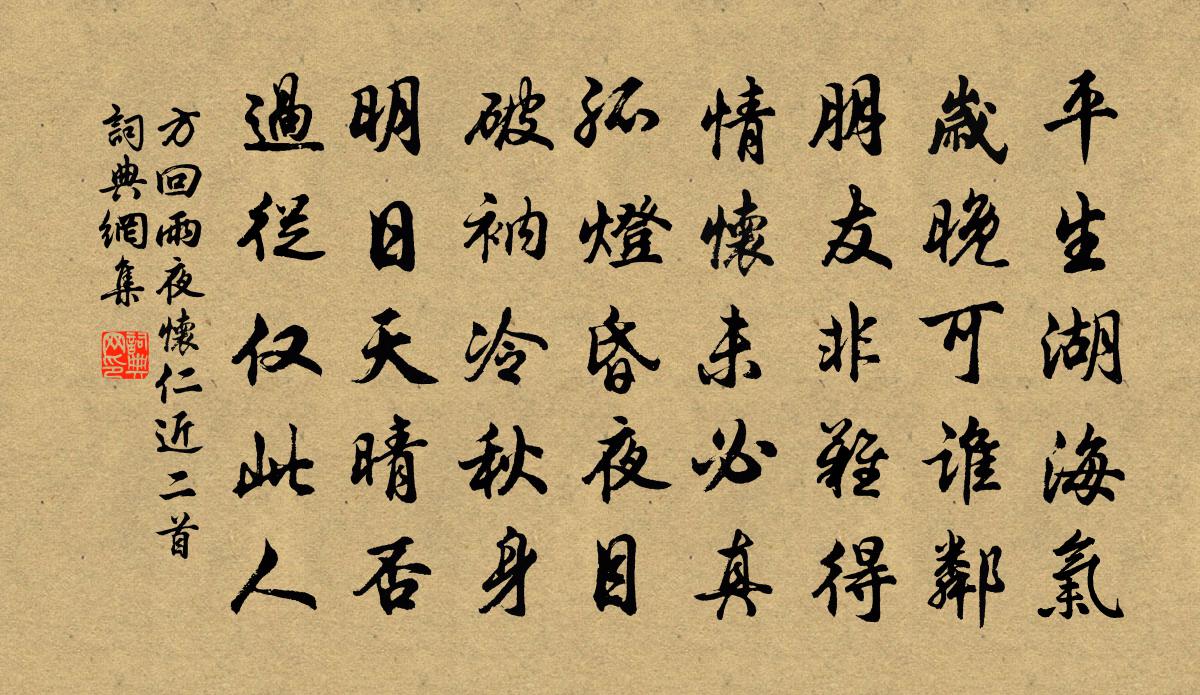 平生湖海氣
歲晚可誰鄰
朋友非難得
情懷未必真
孤燈昏夜目
破衲冷秋身
明日天晴否
過從仅此人
方回雨夜懷仁近二首
詞典網集
詞典
网印